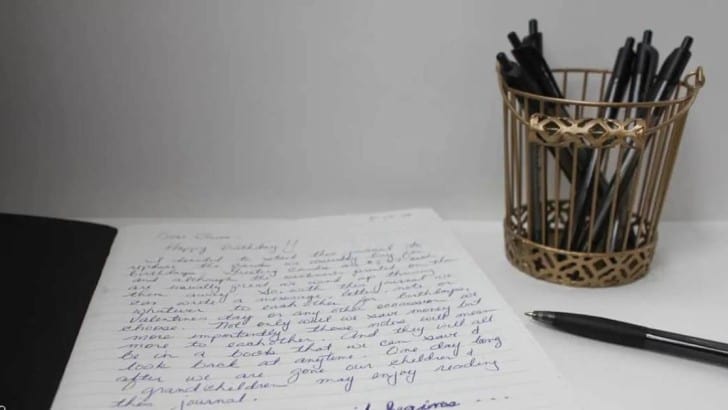 Happy Birthday!!
I decided to start this journal to
replace the cards we normally buy for
birthdays. Greeting Cards are
and although the words printed on them
are usually great we wind up throwing
them away. So with this journal we
can write a message, letter, note or
whatever to each other for birthdays,
Valentines day or any other occasion we
choose. Not only will we save money but
more importantly these notes will mean
more to eachother. And they will all
be in a book that we can save &
look back at anytime. One day long
after we are gone our children &
grandchildren may enjoy reading
this journal.
it begins ...